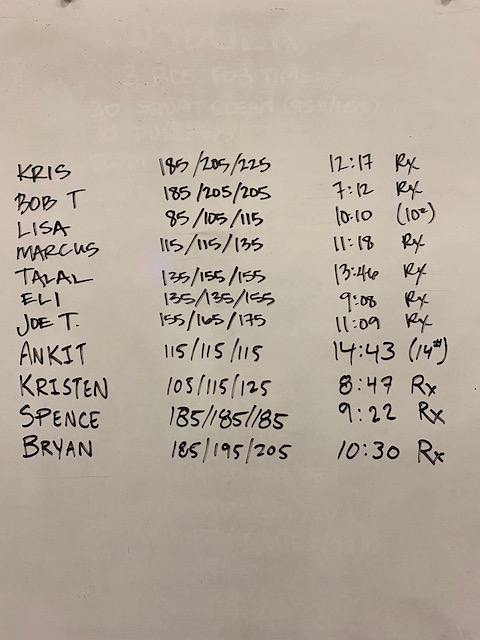 3 RDS FOR TIME
30 SQUAT CLEAN
KRIS 185/205/225 12:17 Rx
BOB T 185/205/205 7:12 Rx
LISA 85/105/115 10:10 (10#)
MARCUS 115/115/135 11:18 Rx
TALAL 135/155/155 13:46 Rx
ELI 135/135/155 9:08 Rx
JOE T. 155/165/175 11:09 Rx
ANKIT 115/115/115 14:43 (14#)
KRISTEN 105/115/125 8:47 Rx
SPENCE 185/185/185 9:22 Rx
BRYAN 185/195/205 10:30 Rx